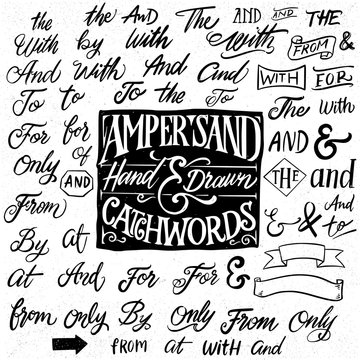 the And The AND AND THE
With by With with FROM &
And With And And WITH FOR
To to To the To The with
For for AMPERSAND AND &
Only of Hand & Drawn THE and
AND CATCHWORDS
From & & And to
By at
at And For For &
from only By Only From Only
FROM at WITH and